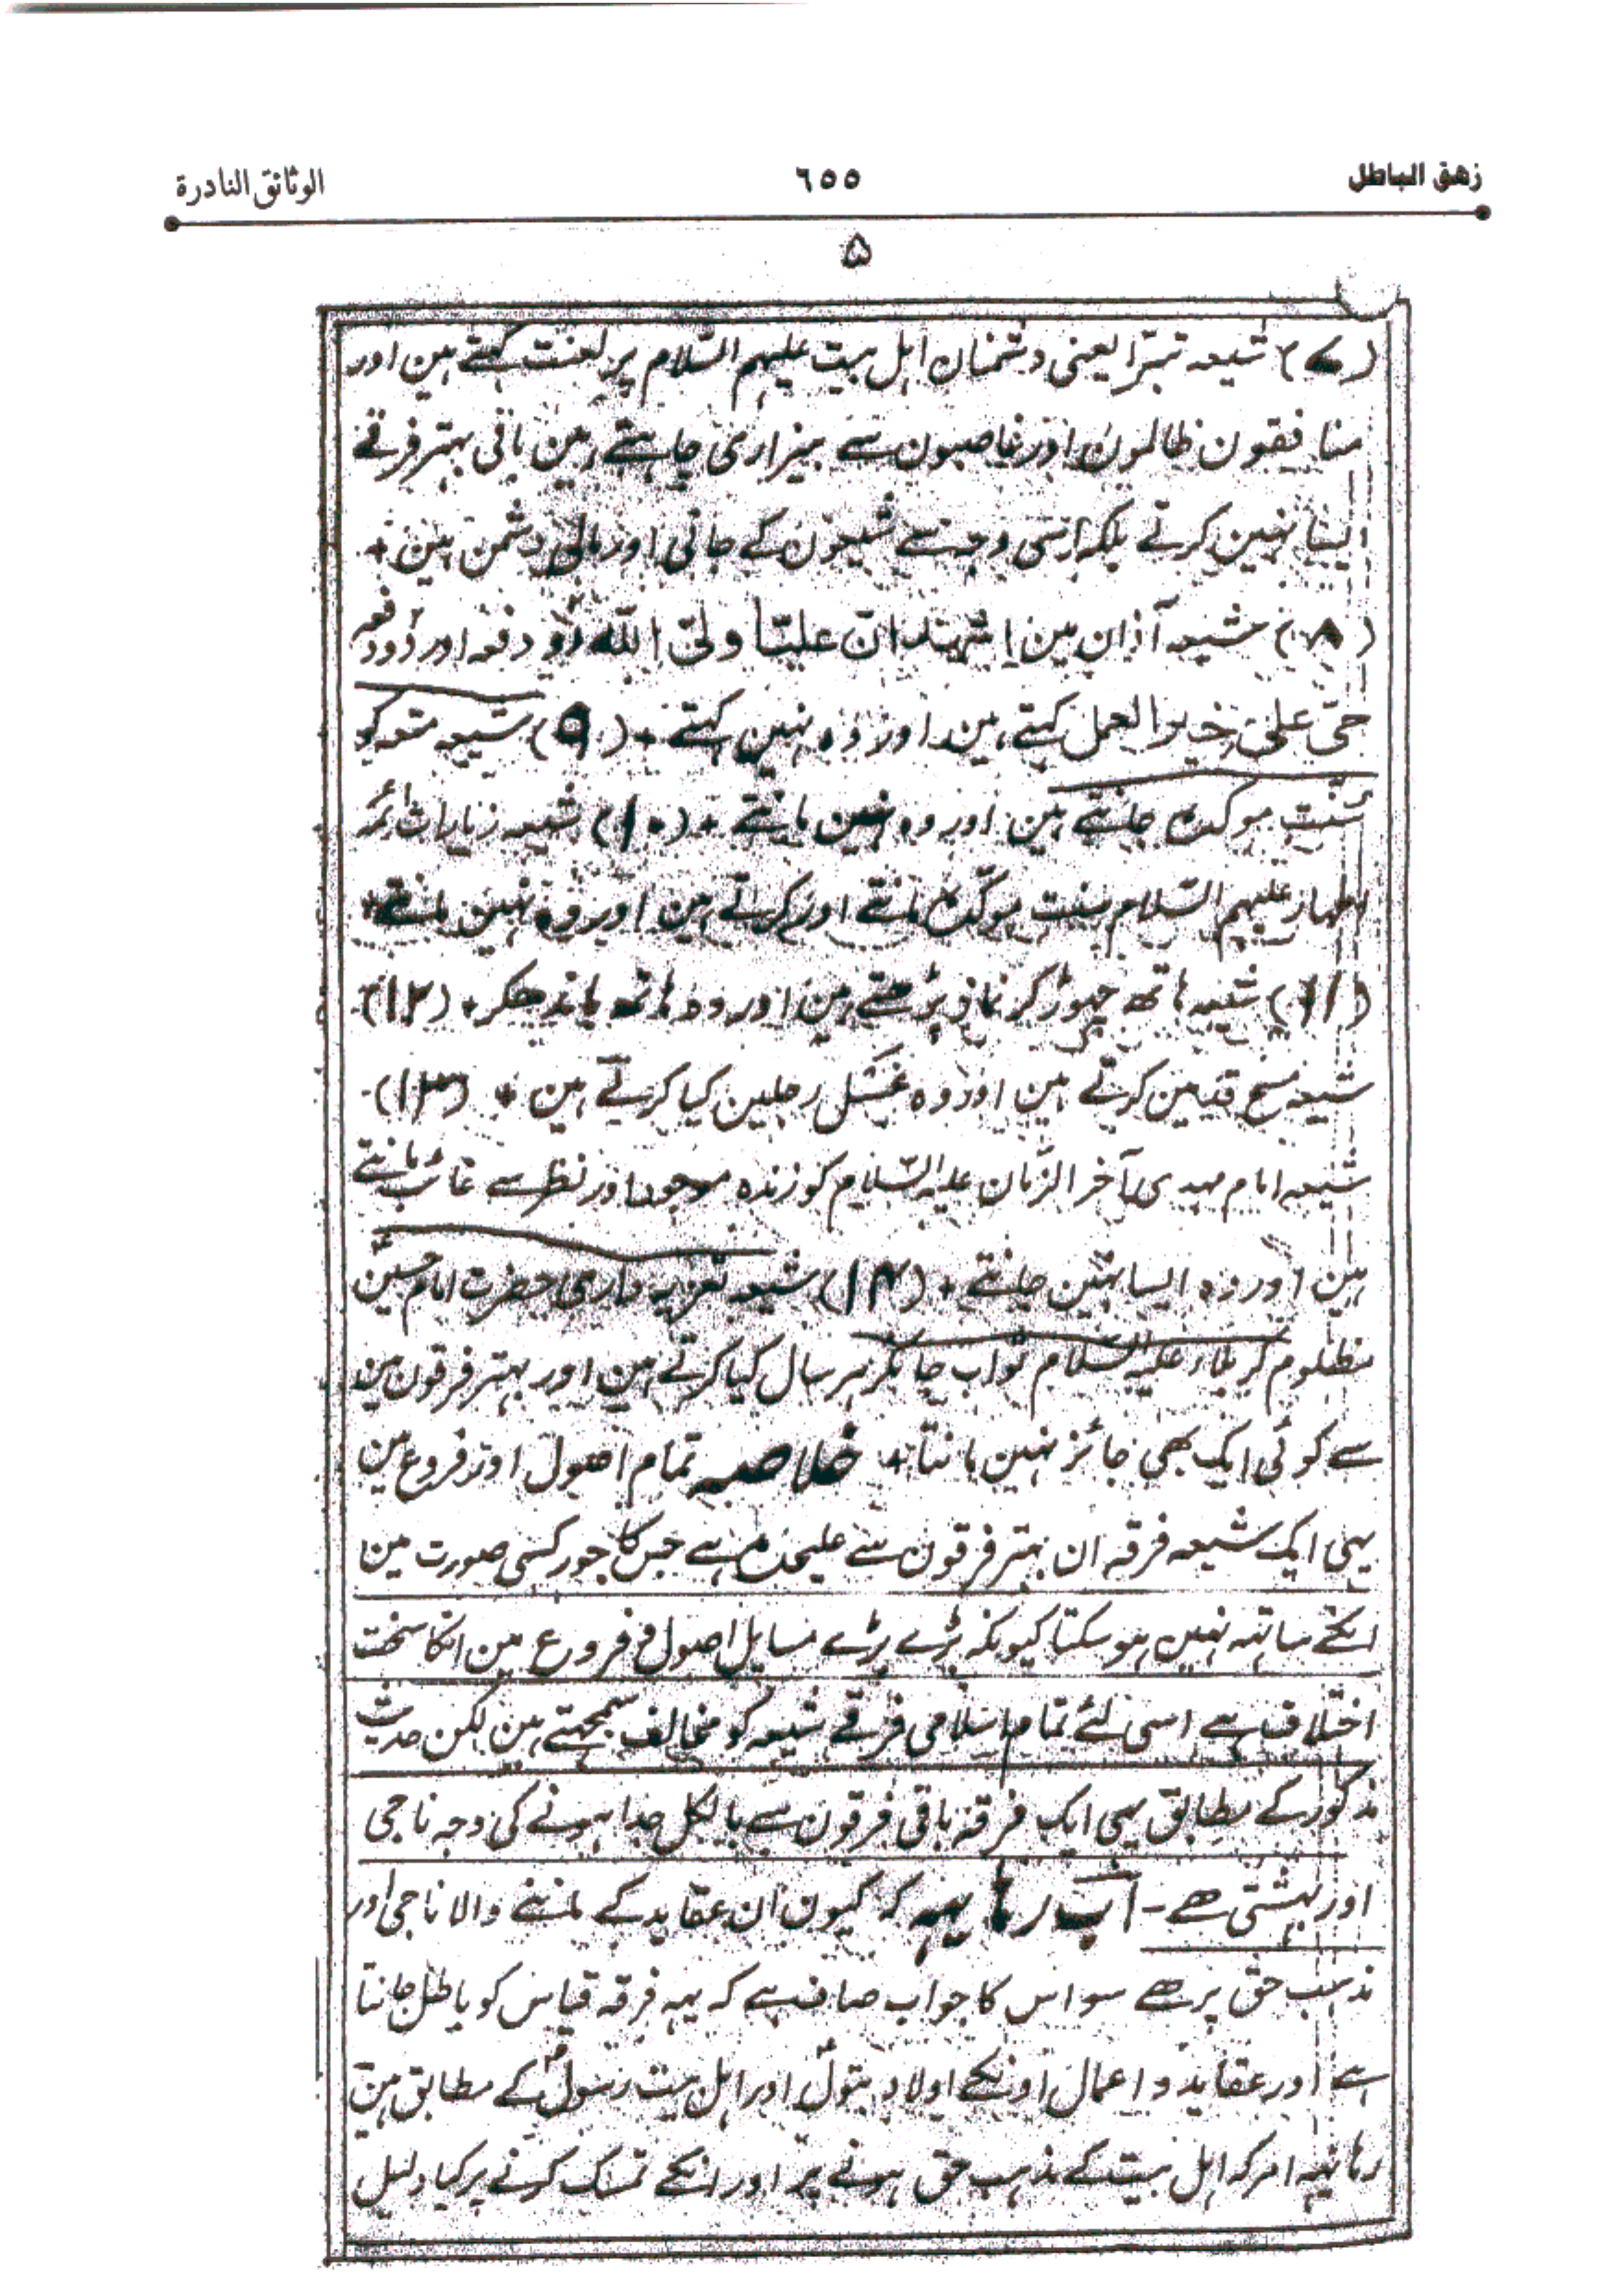 زهق الباطل
٦٥٥
الوثائق النادرة
۵
(۷) شیعہ تبرّا یعنی دشمنان اہل بیت علیہم السّلام پر لعنت کہتے ہین اور
منافقون ظالمون اور غاصبون سے بیزاری چاہتے ہین باقی بہتر فرقے
ایسا نہین کرتے بلکہ اسی وجہ سے شیعون کے جانی اور مالی دشمن ہین +
(۸) شیعہ آذان مین اشہد انّ علیّا ولیّ اللّٰہ دو دفعہ اور دو دفعہ
حیّ علیٰ خیر العمل کہتے ہین اور وہ نہین کہتے + (۹) شیعہ متعہ کو
سنّت موکدہ جانتے ہین اور وہ نہین مانتے + (۱۰) شیعہ زیارات ائمہ
اطہار علیہم السّلام سنت موکّدہ مانتے اور کرتے ہین اور وہ نہین مانتے +
(۱۱) شیعہ ہاتھ چھوڑ کر نماز پڑھتے ہین اور وہ ہاتھ باندھکر + (۱۲)
شیعہ مسح قدمین کرتے ہین اور وہ غسل رجلین کیا کرتے ہین + (۱۳)
شیعہ امام مہدی آخر الزّمان علیہ السّلام کو زندہ موجود اور نظر سے غائب مانتے
ہین اور وہ ایسا نہین جانتے + (۱۴) شیعہ تعزیہ داری حضرت امام حسینؑ
مظلوم کربلاء علیہ السلام ثواب جانکر ہر سال کیا کرتے ہین اور بہتر فرقون مین
سے کوئی ایک بھی جائز نہین مانتا + خلاصہ تمام اصول اور فروع مین
یہی ایک شیعہ فرقہ ان بہتر فرقون سے علیحدہ ہے جس کا جوڑ کسی صورت مین
انکے ساتہہ نہین ہو سکتا کیونکہ بڑے بڑے مسایل اصول و فروع مین انکا سخت
اختلاف ہے اسی لئے تمام اسلامی فرقے شیعہ کو مخالف سمجہتے ہین لکن حدیث
مذکور کے مطابق یہی ایک فرقہ باقی فرقون سے بالکل جدا ہونے کی وجہ ناجی
اور بہشتی ہے - اب رہا یہہ کہ کیون ان عقاید کے ماننے والا ناجی اور
مذہب حق پر ہے سو اس کا جواب صاف ہے کہ یہہ فرقہ قیاس کو باطل جانتا
ہے اور عقاید و اعمال اونکے اولاد بتولؑ اور اہل بیت رسولؐ کے مطابق ہین
رہا یہہ امر کہ اہل بیت کے مذہب حق ہونے پر اور انکے تمسک کرنے پر کیا دلیل